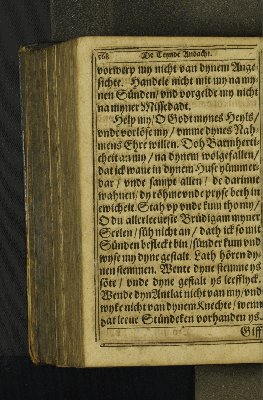 568 De Teynde Andacht.
vorwerp my nicht van dynem Ange-
sichte. Handele nicht mit my na my-
nen Sünden/ vnd vorgelde my nicht
na myner Missedadt.
Help my/ O Godt mynes Heyls/
vnde vorlöse my / vmme dynes Nah-
mens Ehre willen. Doh Barmherti-
cheit an my / na dynem wolgefallen/
dat ick wane in dynem Huse yümmer-
dar / vnde sampt allen / de darinne
wahnen/ dy röhme vnde pryse beth in
ewicheit. Stah vp vnde kum tho my/
O du allerleeueste Brüdigam myner
Seelen / süh nicht an / dath ick so mit
Sünden beflecket bin / sünder kum vnd
wyse my dyne gestalt. Lath hören dy-
nen stemmen. Wente dyne stemme ys
söte / vnde dyne gestalt ys leefflyck.
Wende dyn Antlat nicht van my/ vnd
wyke nicht van dynem Knechte/ wenn
dat leeue Stündeken vorhanden ys.
Giff